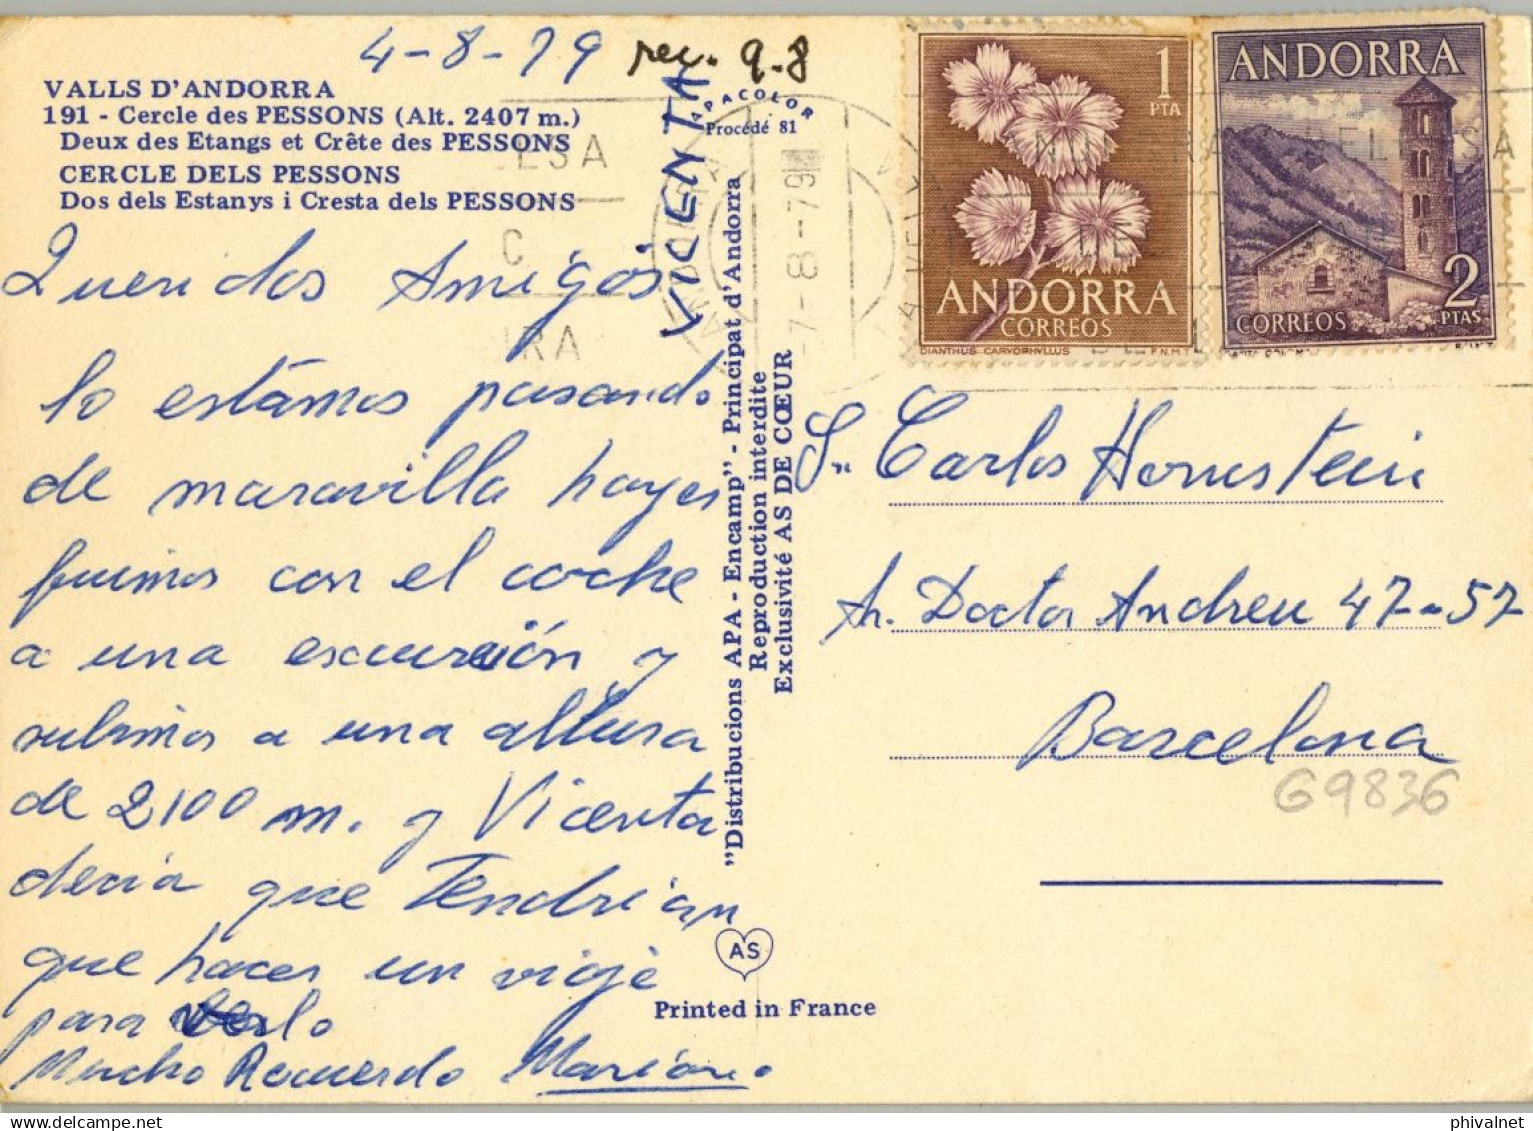 4-8-79 rec. 9-8
VALLS D'ANDORRA
191 - Cercle des PESSONS (Alt. 2407 m.)
Deux des Etangs et Crête des PESSONS
CERCLE DELS PESSONS
Dos dels Estanys i Cresta dels PESSONS
Queridos Amigos
lo estámos pasando
de maravilla hayer
fuimos con el coche
a una escurción y
subimos a una altura
de 2100 m. y Vicenta
decia que Tendrian
que hacer un viaje
para verlo
Mucho Recuerdo Mariano
VICENTA
APACOLOR
Procédé 81
"Distribucions APA - Encamp" - Principat d'Andorra
Reproduction interdite
Exclusivité AS DE CŒUR
AS
Printed in France
7-8-79
1
PTA
ANDORRA
CORREOS
DIANTHUS CARYOPHYLLUS F.N.M.T
ANDORRA
2
CORREOS PTAS
Sr. Carlos Hornstein
Av. Doctor Andreu 47-57
Barcelona
G9836
phivalnet